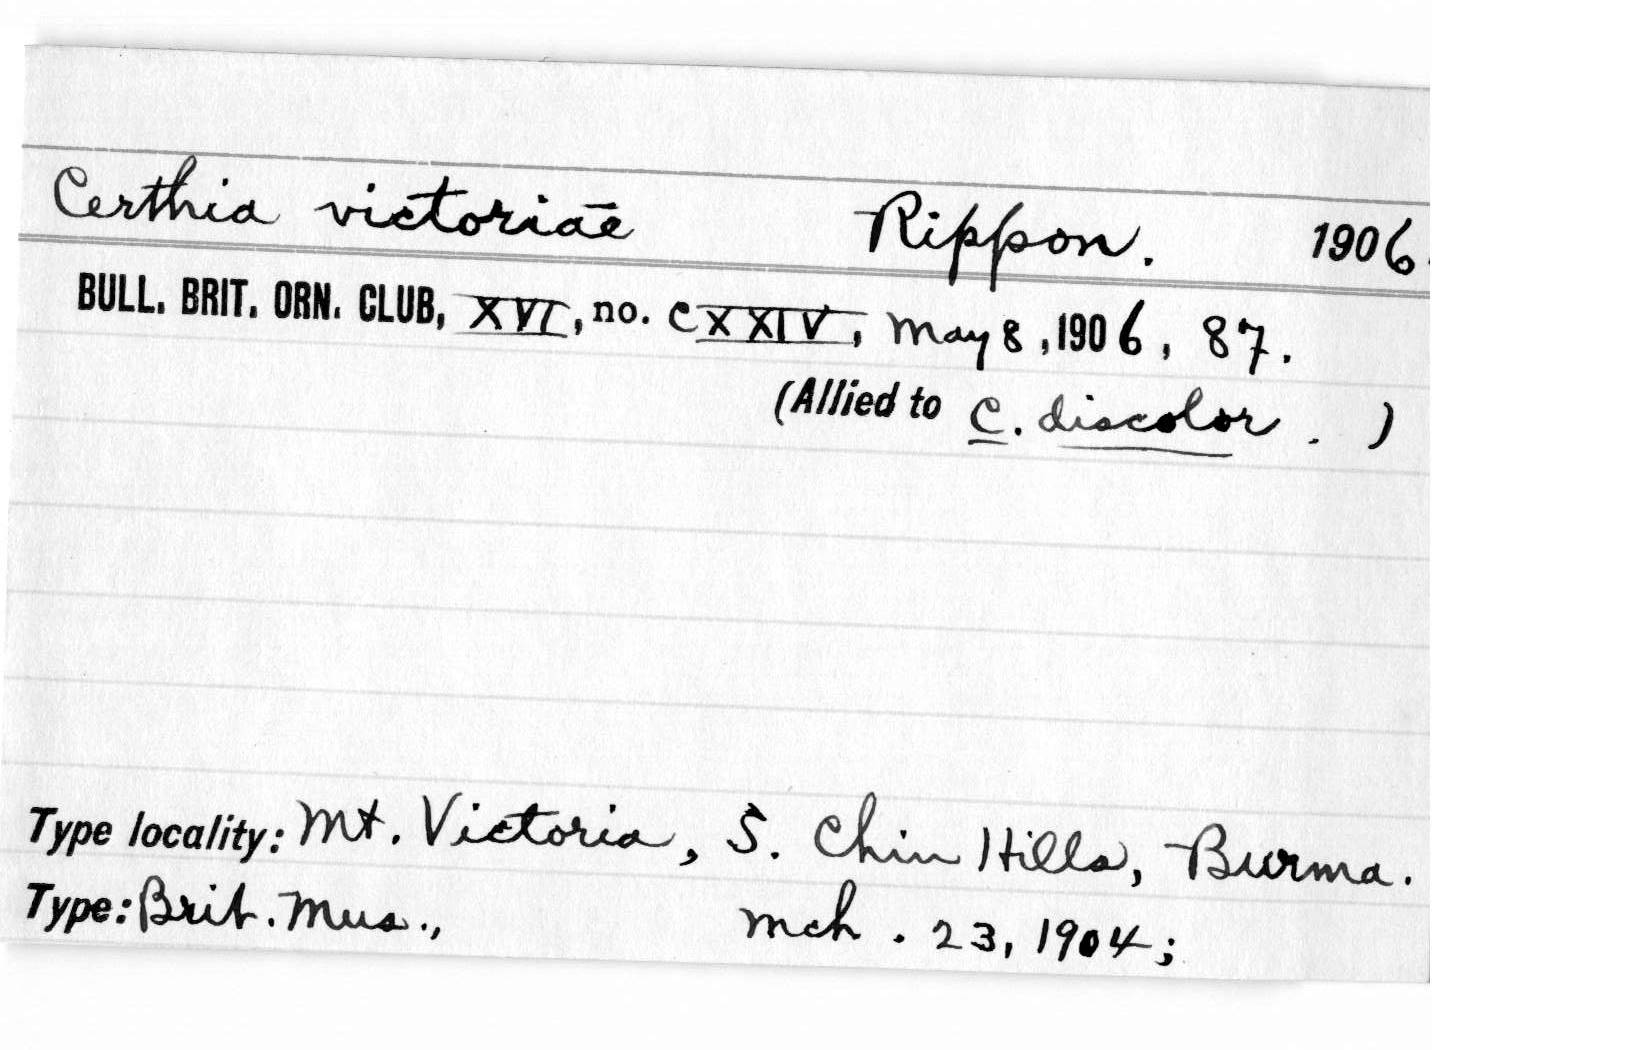 Certhia victoriae Rippon. 1906.
BULL. BRIT. ORN. CLUB, XVI, no. CXXIV, May 8, 1906, 87.
(Allied to C. discolor. )
Type locality: Mt. Victoria, S. Chin Hills, Burma.
Type: Brit. Mus., Mch. 23, 1904;